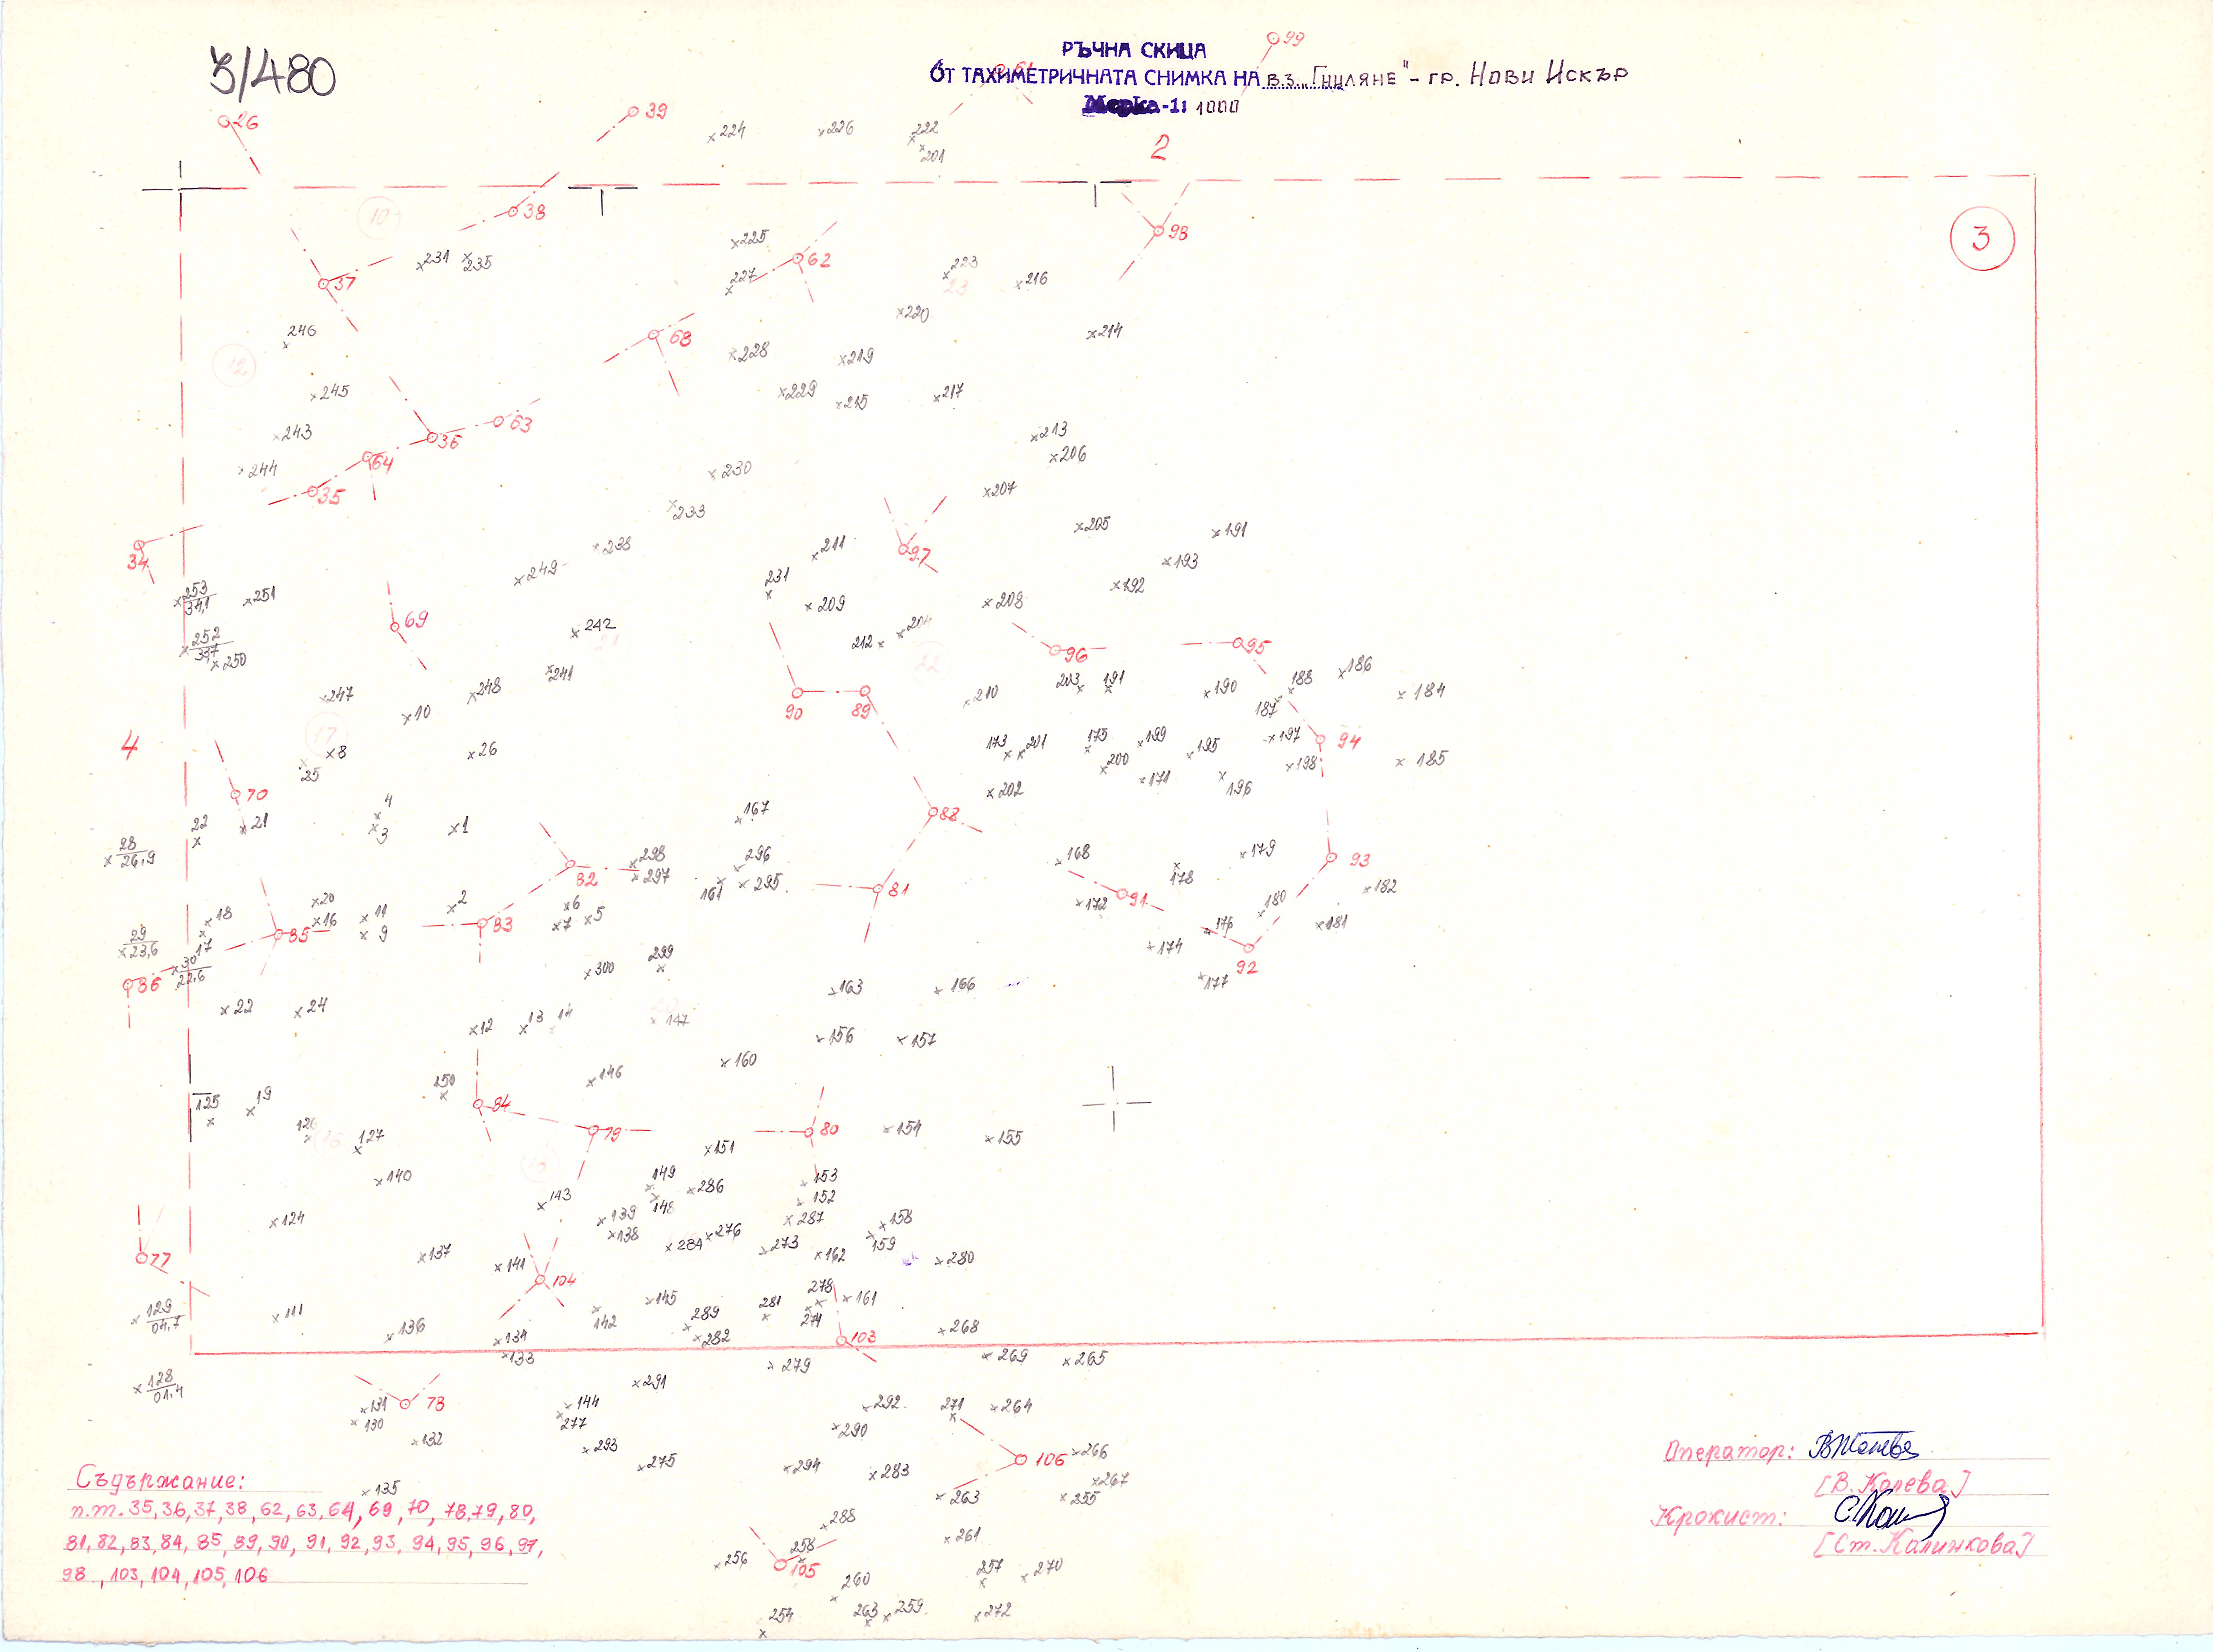 3/480
РЪЧНА СКИЦА
ОТ ТАХИМЕТРИЧНАТА СНИМКА НА В.З. „Гниляне" - гр. Нови Искър
Мерка - 1: 1000
99
61
26
39
224
226
222
201
2
10
38
3
98
225
62
231
235
227
223
23
216
37
220
214
246
68
228
219
12
229
215
217
245
63
243
36
213
64
206
244
230
35
207
233
205
191
34
238
211
97
193
249
231
192
253
34,1
251
209
208
69
242
204
252
33,7
250
212
21
22
96
95
241
203
191
188
186
247
248
90
89
210
190
184
10
187
17
4
8
26
173
201
175
199
195
197
94
25
200
198
185
171
196
70
202
4
167
22
21
3
1
88
28
26,9
298
296
168
179
93
82
297
161
295
81
178
182
20
2
6
91
180
18
16
11
83
7
5
172
176
181
29
23,6
17
85
9
174
92
30
22,6
299
86
300
163
166
177
22
24
20
12
13
14
147
156
157
160
150
146
125
19
84
126
16
127
79
80
154
155
151
140
149
153
286
143
148
152
124
139
287
158
138
284
276
273
162
159
280
137
141
77
104
278
145
161
129
04,7
111
289
281
136
142
274
134
282
103
268
133
279
269
265
128
01,4
291
131
78
144
292
271
264
130
277
290
132
293
106
266
275
294
283
267
135
263
255
288
261
258
256
105
257
270
260
263
259
254
272
Съдържание:
п.т. 35, 36, 37, 38, 62, 63, 64, 69, 70, 78, 79, 80,
81, 82, 83, 84, 85, 89, 90, 91, 92, 93, 94, 95, 96, 97,
98, 103, 104, 105, 106
Оператор:
[В. Колева]
Крокист:
[Ст. Калинкова]